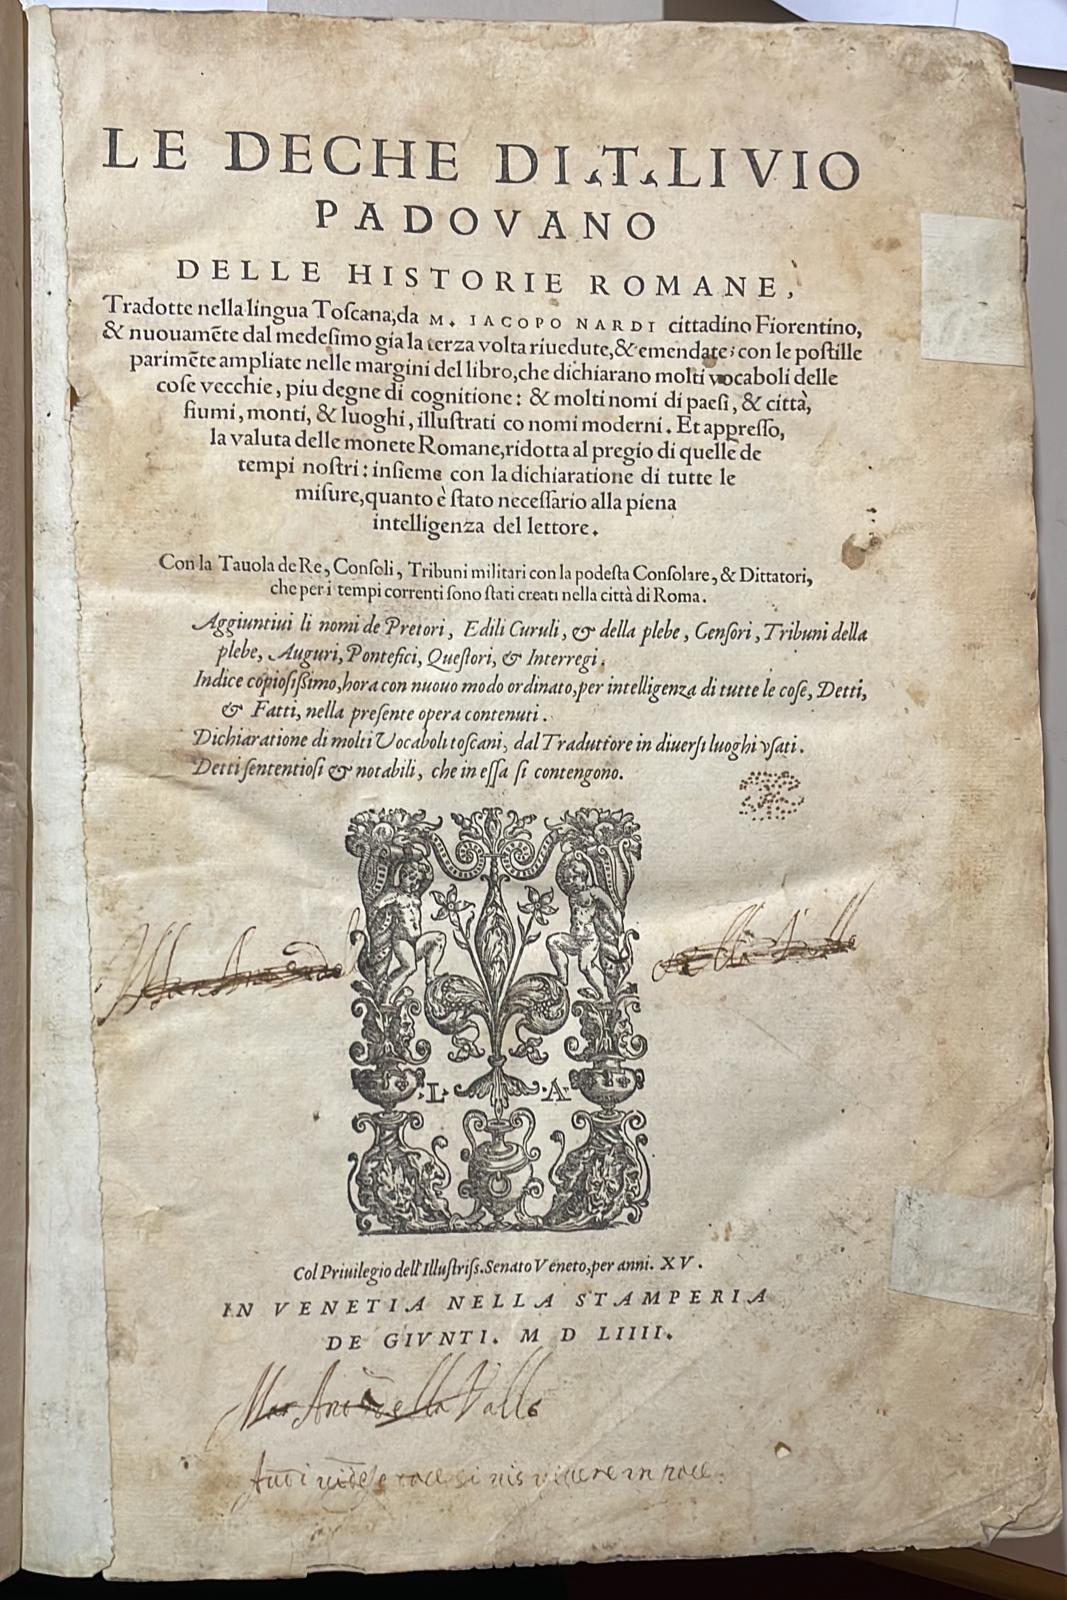 LE DECHE DI.T.LIVIO
PADOVANO
DELLE HISTORIE ROMANE,
Tradotte nella lingua Toſcana, da M. IACOPO NARDI cittadino Fiorentino,
& nuouamēte dal medeſimo gia la terza volta riuedute, & emendate: con le poſtille
parimēte ampliate nelle margini del libro, che dichiarano molti vocaboli delle
coſe vecchie, piu degne di cognitione: & molti nomi di paeſi, & città,
fiumi, monti, & luoghi, illuſtrati co nomi moderni. Et appreſſo,
la valuta delle monete Romane, ridotta al pregio di quelle de
tempi noſtri: inſieme con la dichiaratione di tutte le
miſure, quanto è ſtato neceſſario alla piena
intelligenza del lettore.
Con la Tauola de Re, Conſoli, Tribuni militari con la podeſta Conſolare, & Dittatori,
che per i tempi correnti ſono ſtati creati nella città di Roma.
Aggiuntiui li nomi de Pretori, Edili Curuli, & della plebe, Cenſori, Tribuni della
plebe, Auguri, Pontefici, Queſtori, & Interregi.
Indice copioſiſſimo, hora con nuouo modo ordinato, per intelligenza di tutte le coſe, Detti,
& Fatti, nella preſente opera contenuti.
Dichiaratione di molti Vocaboli toſcani, dal Traduttore in diuerſi luoghi vſati.
Detti ſententioſi & notabili, che in eſſa ſi contengono.
.L. .A.
Col Priuilegio dell'Illuſtriſſ. Senato Veneto, per anni. XV.
IN VENETIA NELLA STAMPERIA
DE GIVNTI. M D LIIII.
Mar Ant della Valle